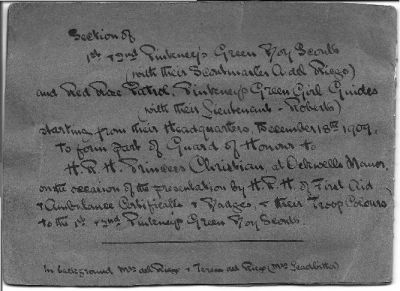 Section of
1st & 2nd Pinkneys Green Boy Scouts
(with their Scoutmaster A. del Riego)
and Red Rose Patrol, Pinkneys Green Girl Guides
(with their Lieutenant - Roberts)
starting from their Headquarters, December 18th 1909,
to form part of Guard of Honour to
H.R.H. Princess Christian, at Ockwells Manor,
on the occasion of the presentation by H.R.H. of First Aid
& Ambulance Certificates & Badges, & their Troop Colours
to the 1st & 2nd Pinkneys Green Boy Scouts.
In background Mrs del Riego & Teresa del Riego (Mrs Leadbitter)